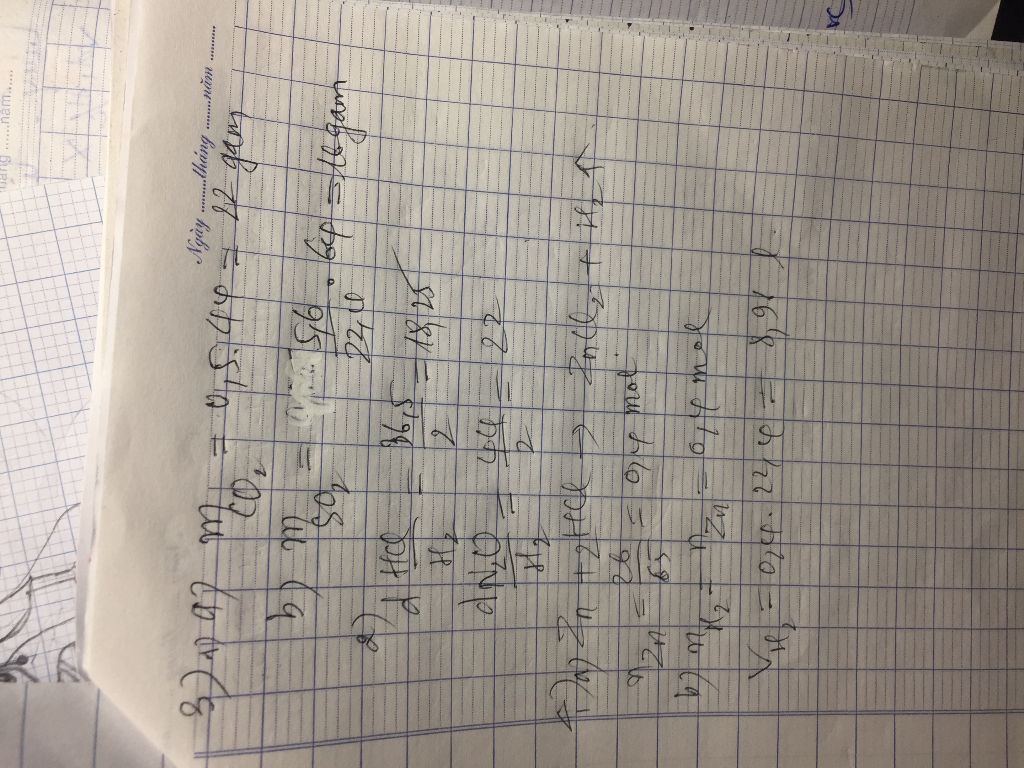 Ngày ........tháng ........năm ........
3) m CO₂ = 0,5. 44 = 22 gam
m SO₂ = 5,6/22,4 . 64 = 16 gam
2) d HCl/H₂ = 36,5/2 = 18,25
d N₂O/H₂ = 44/2 = 22
a) Zn + 2HCl → ZnCl₂ + H₂ ↑
n Zn = 26/65 = 0,4 mol
b) n H₂ = n Zn = 0,4 mol
V H₂ = 0,4. 22,4 = 8,96 l